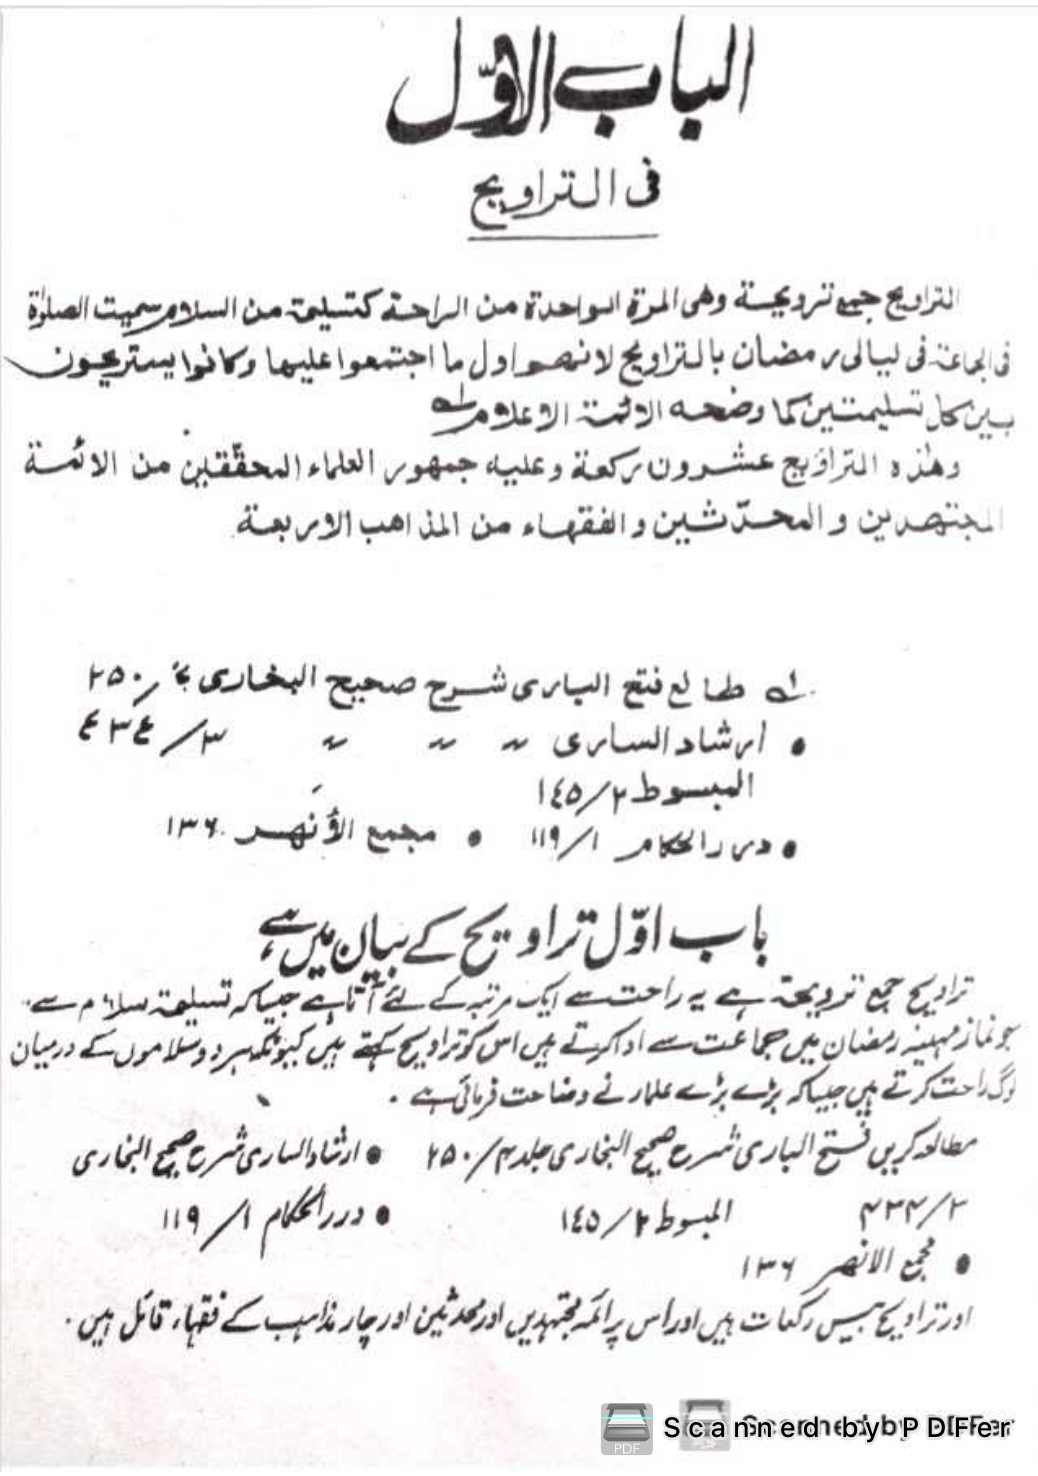 الباب الاوّل
فی التراویح
التراویح جمع ترویحة وهی المرة الواحدة من الراحة کتسلیمة من السلام سمیت الصلوٰة
فی الجماعة فی لیالی رمضان بالتراویح لانهم اول ما اجتمعوا علیها وکانوا یستریحون
بین کل تسلیمتین کما وضحه الائمة الاعلام لـه
وهٰذه التراویح عشرون رکعة وعلیه جمهور العلماء المحقّقین من الائمة
المجتهدین والمحدّثین والفقهاء من المذاهب الاربعة
لـه طالع فتح الباری شرح صحیح البخاری ج۴/۲۵۰
• ارشاد الساری 〃 〃 〃 ۳/٤۳٤
المبسوط ۲/۱٤۵
• درر الحکام ۱/۱۱۹ • مجمع الأنهر ۱۳۶
باب اوّل تراویح کے بیان میں ہے
تراویح جمع ترویحۃ ہے یہ راحت سے ایک مرتبہ کے لئے آتا ہے جیسا کہ تسلیمۃ سلام سے۔
جو نماز مہینہ رمضان میں جماعت سے ادا کرتے ہیں اس کو تراویح کہتے ہیں کیونکہ ہر دو سلاموں کے درمیان
لوگ راحت کرتے ہیں جیسا کہ بڑے بڑے علماء نے وضاحت فرمائی ہے ۔
مطالعہ کریں فتح الباری شرح صحیح البخاری جلد ۴/۲۵۰ • ارشاد الساری شرح صحیح البخاری
۳/۴۳۴ المبسوط ۲/۱٤۵ • درر الحکام ۱/۱۱۹
• مجمع الانھر ۱۳۶
اور تراویح بیس رکعات ہیں اور اس پر ائمہ مجتہدین اور محدثین اور چار مذاہب کے فقہاء قائل ہیں ۔
PDF Scanned by PDFer
Scanned by PDFer